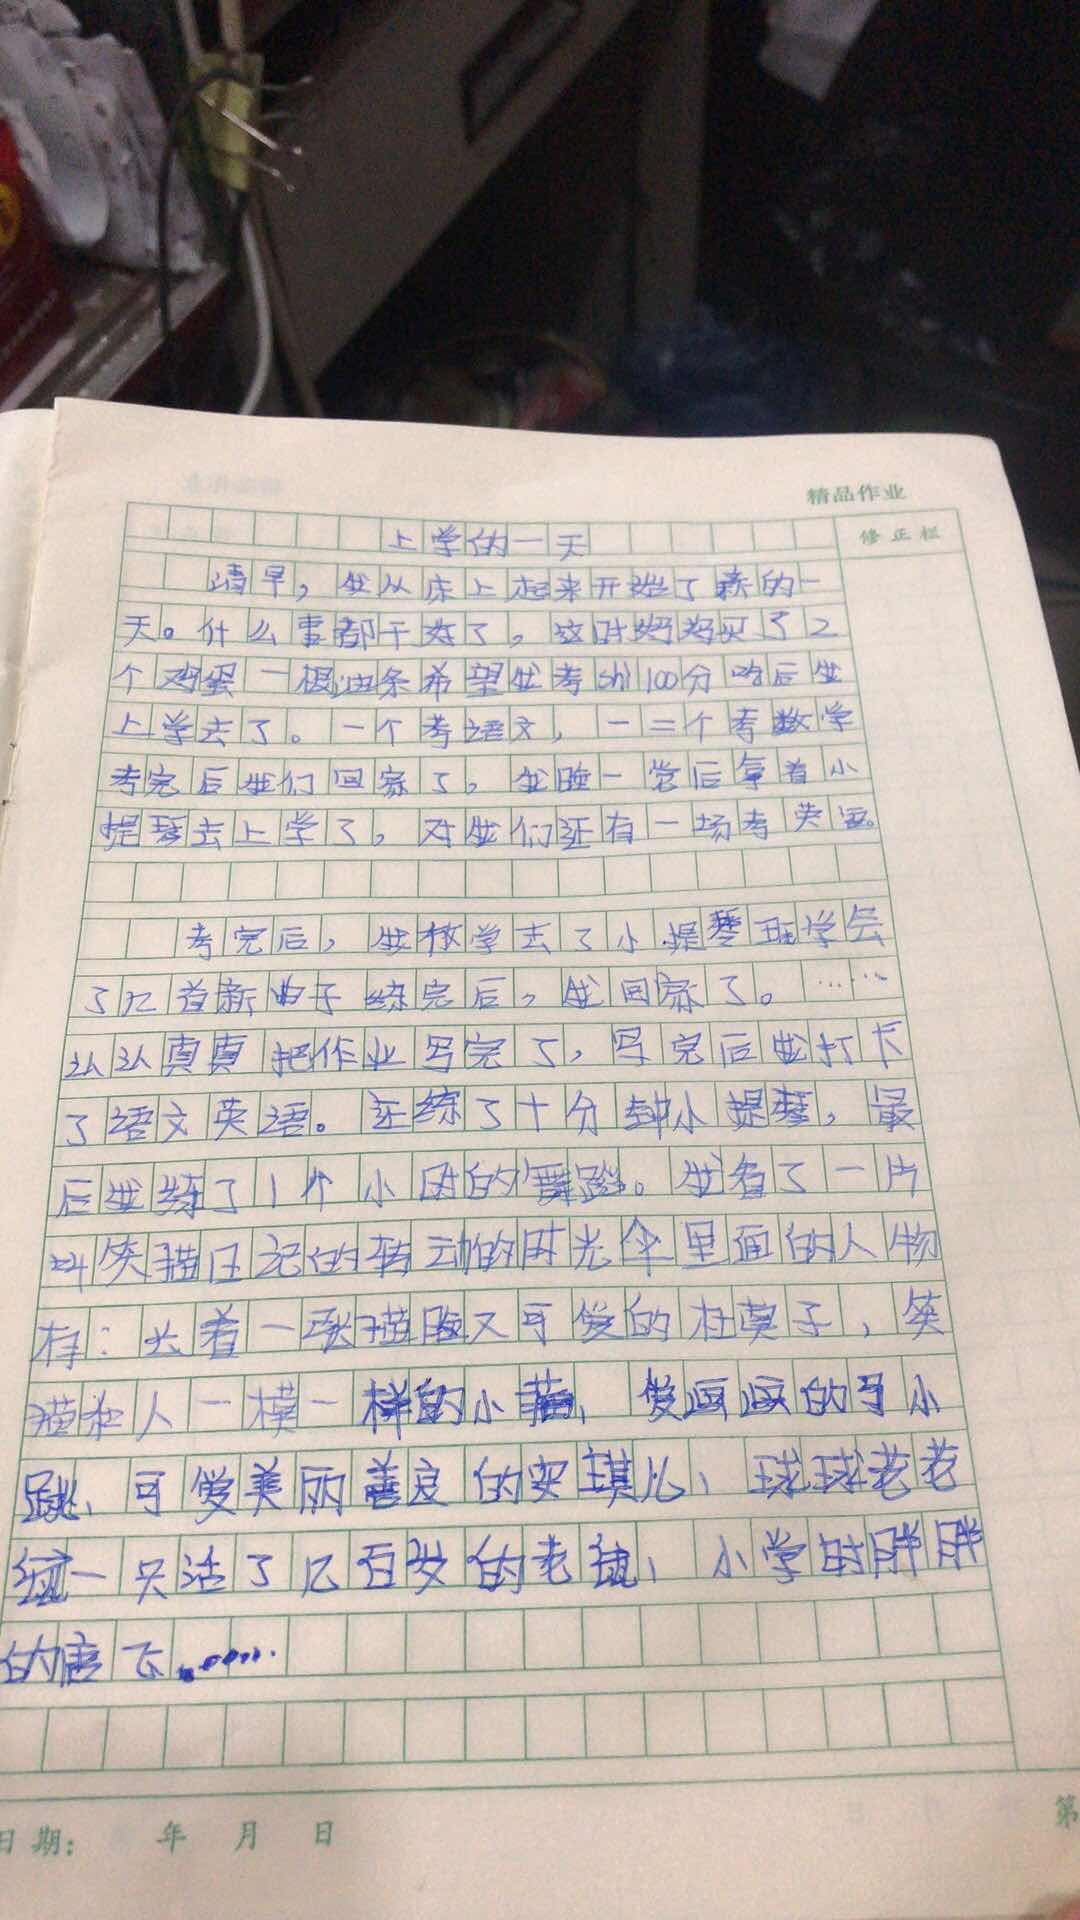 精品作业
修正栏
上学的一天
清早，我从床上起来开始了新的一
天。什么事都干好了。这时妈妈买了2
个鸡蛋一根油条希望我考shi100分吃后我
上学去了。一个考语文，一二个考数学
考完后我们回家了。我睡一觉后拿着小
提琴去上学了，对我们还有一场考英语。
考完后，我放学去了小提琴班学会
了几首新曲子练完后，我回家了。……
认认真真把作业写完了，写完后我打卡
了语文英语。还练了十分钟小提琴，最
后我练了1个小时的舞蹈。我看了一片
叫笑猫日记的转动的时光伞里面的人物
有：长着一张猫脸又可爱的杜真子，笑
猫和人一模一样的小猫、爱画画的马小
跳、可爱美丽善良的安琪儿、球球老老
统一只活了几百岁的老鼠、小学时胖胖
的唐飞……
日期： 年 月 日
第